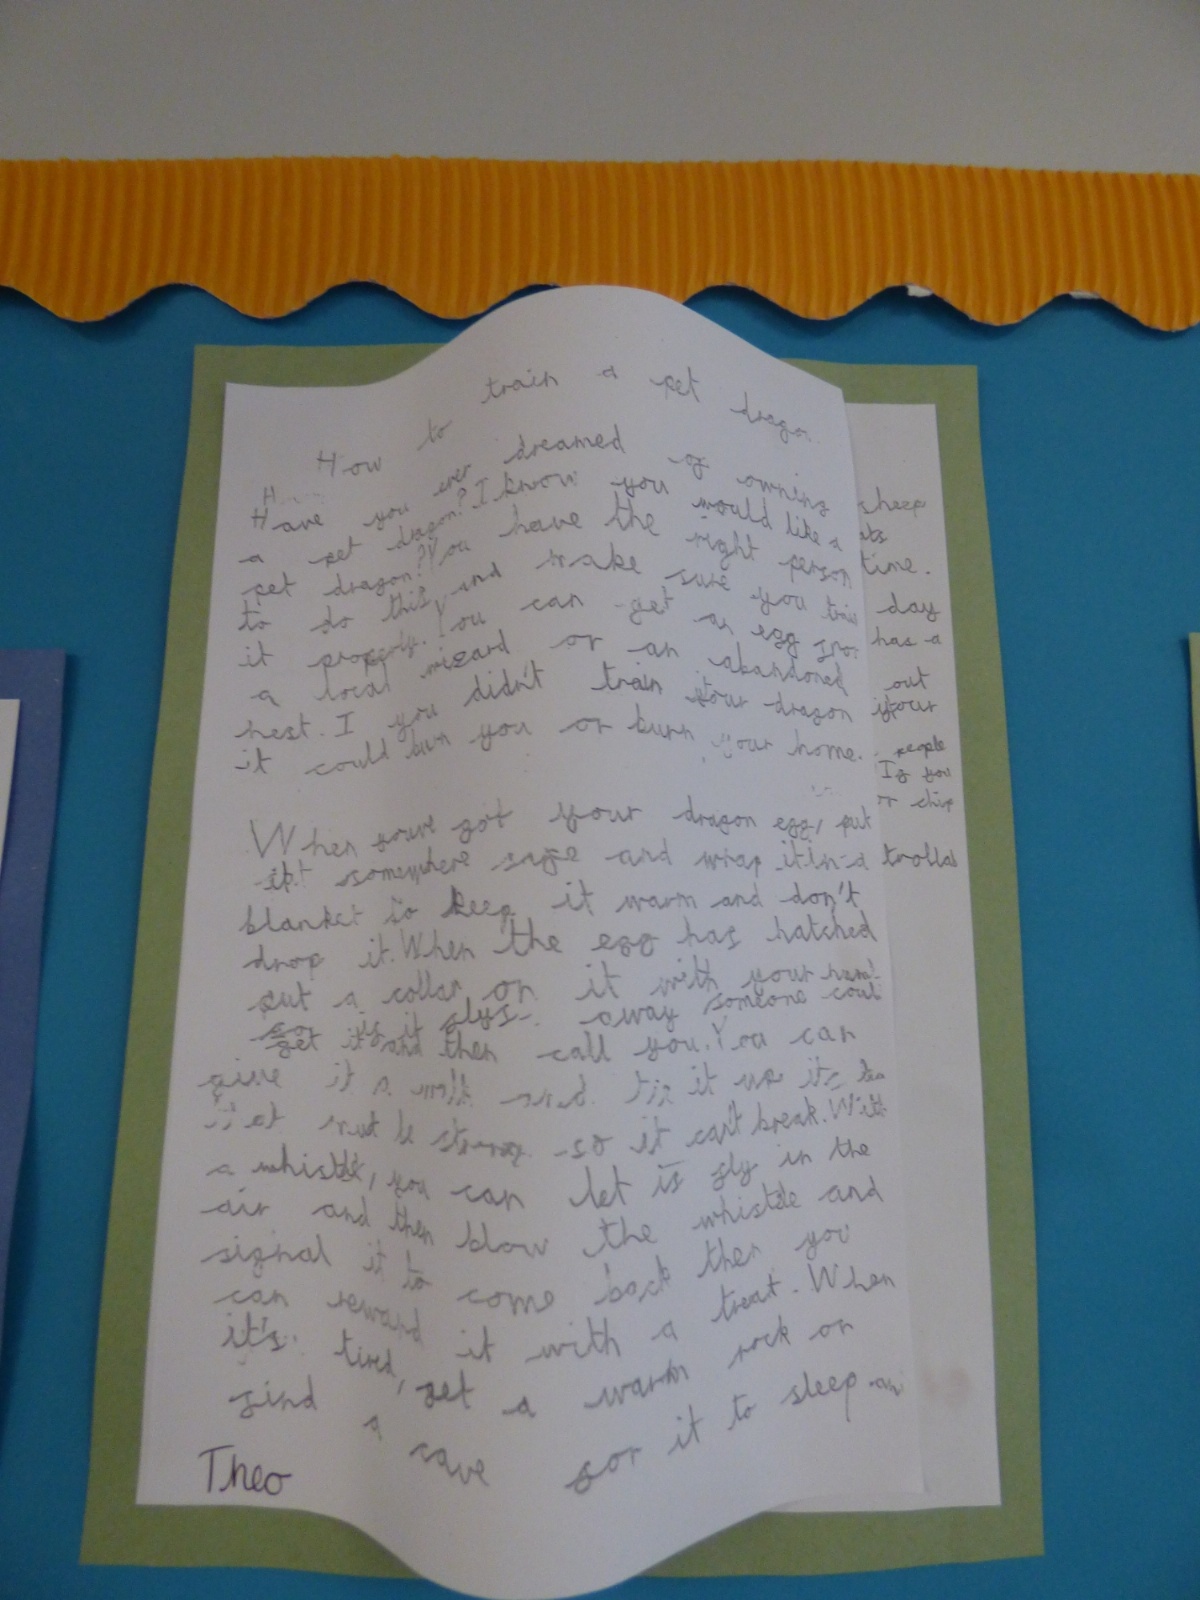 How to train a pet dragon
Have you ever dreamed of owning
a pet dragon? I know you would like a
pet dragon? You have the right person
to do this, and make sure you train
it properly. You can get an egg from
a local wizard or an abandoned
nest. If you didn't train your dragon
it could burn you or burn your home.
When youve got your dragon egg, put
it somewhere safe and wrap it in a
blanket to keep it warm and don't
drop it. When the egg has hatched
put a collar on it with your
so if it flys away someone
get it and then call you. You can
give it a walk and tie it up
must be strong so it can't break. With
a whistle, you can let it fly in the
air and then blow the whistle and
signal it to come back then you
can reward it with a treat. When
it's tired, get a warm rock or
find a cave for it to sleep
Theo
sheep
time.
day
has a
out
your
people
If you
or chip